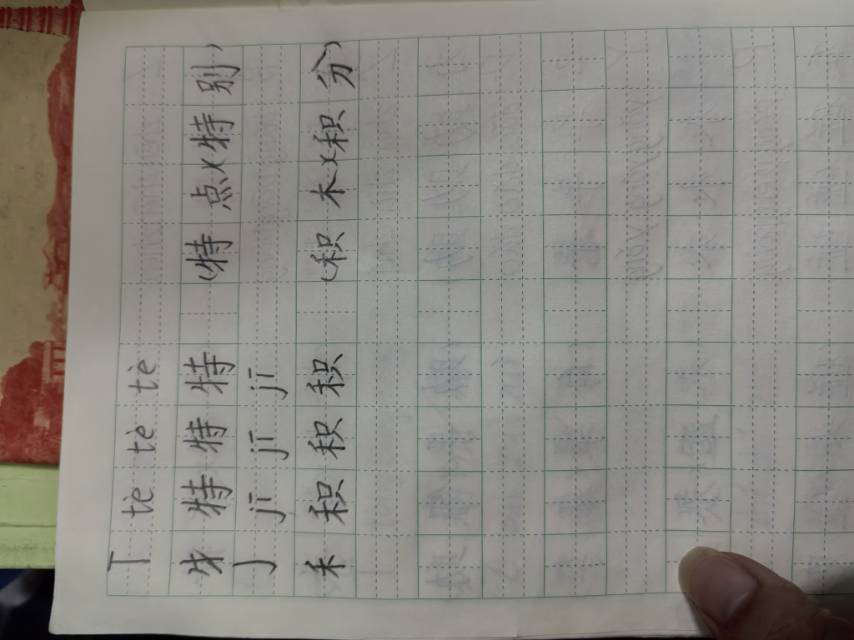 T tè tè tè
牜 特 特 特 (特 点)(特 别)
J jī jī jī
禾 积 积 积 (积 木)(积 分)